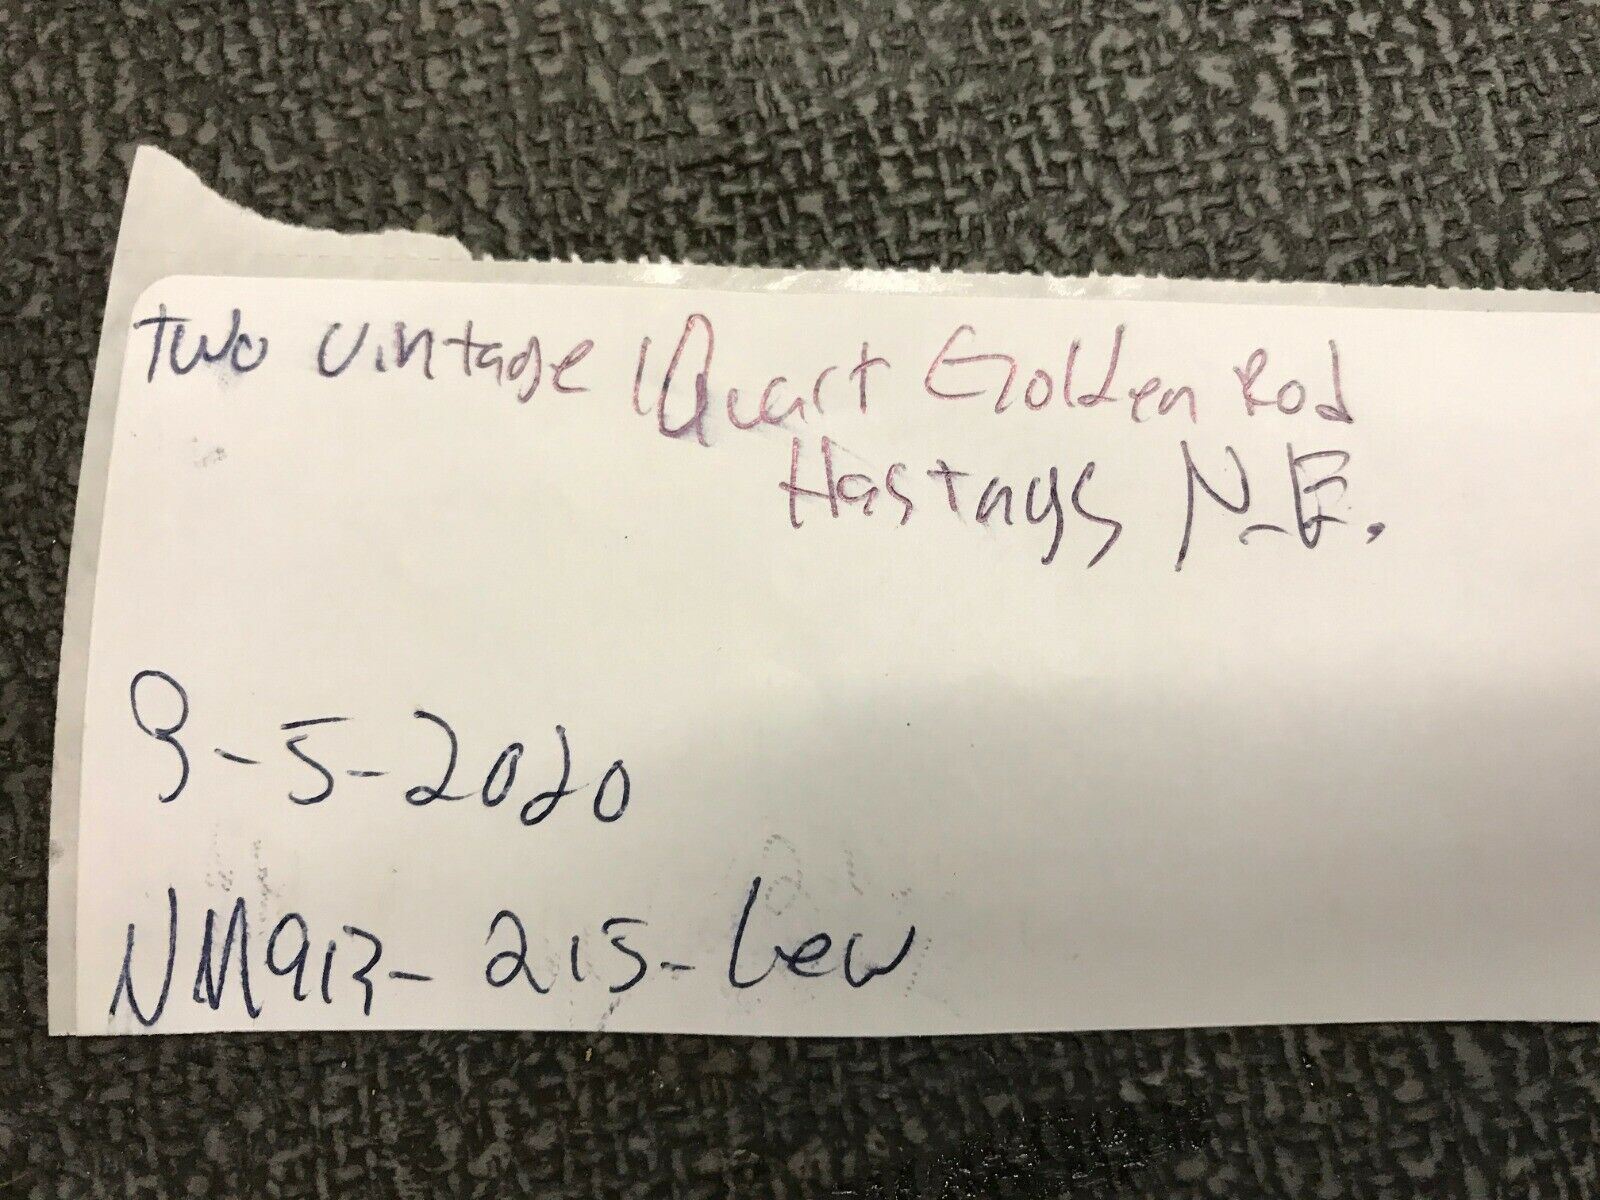 Two vintage 1 Quart Golden Rod
Hastngs N.E.
9-5-2020
NM913-215-Lew